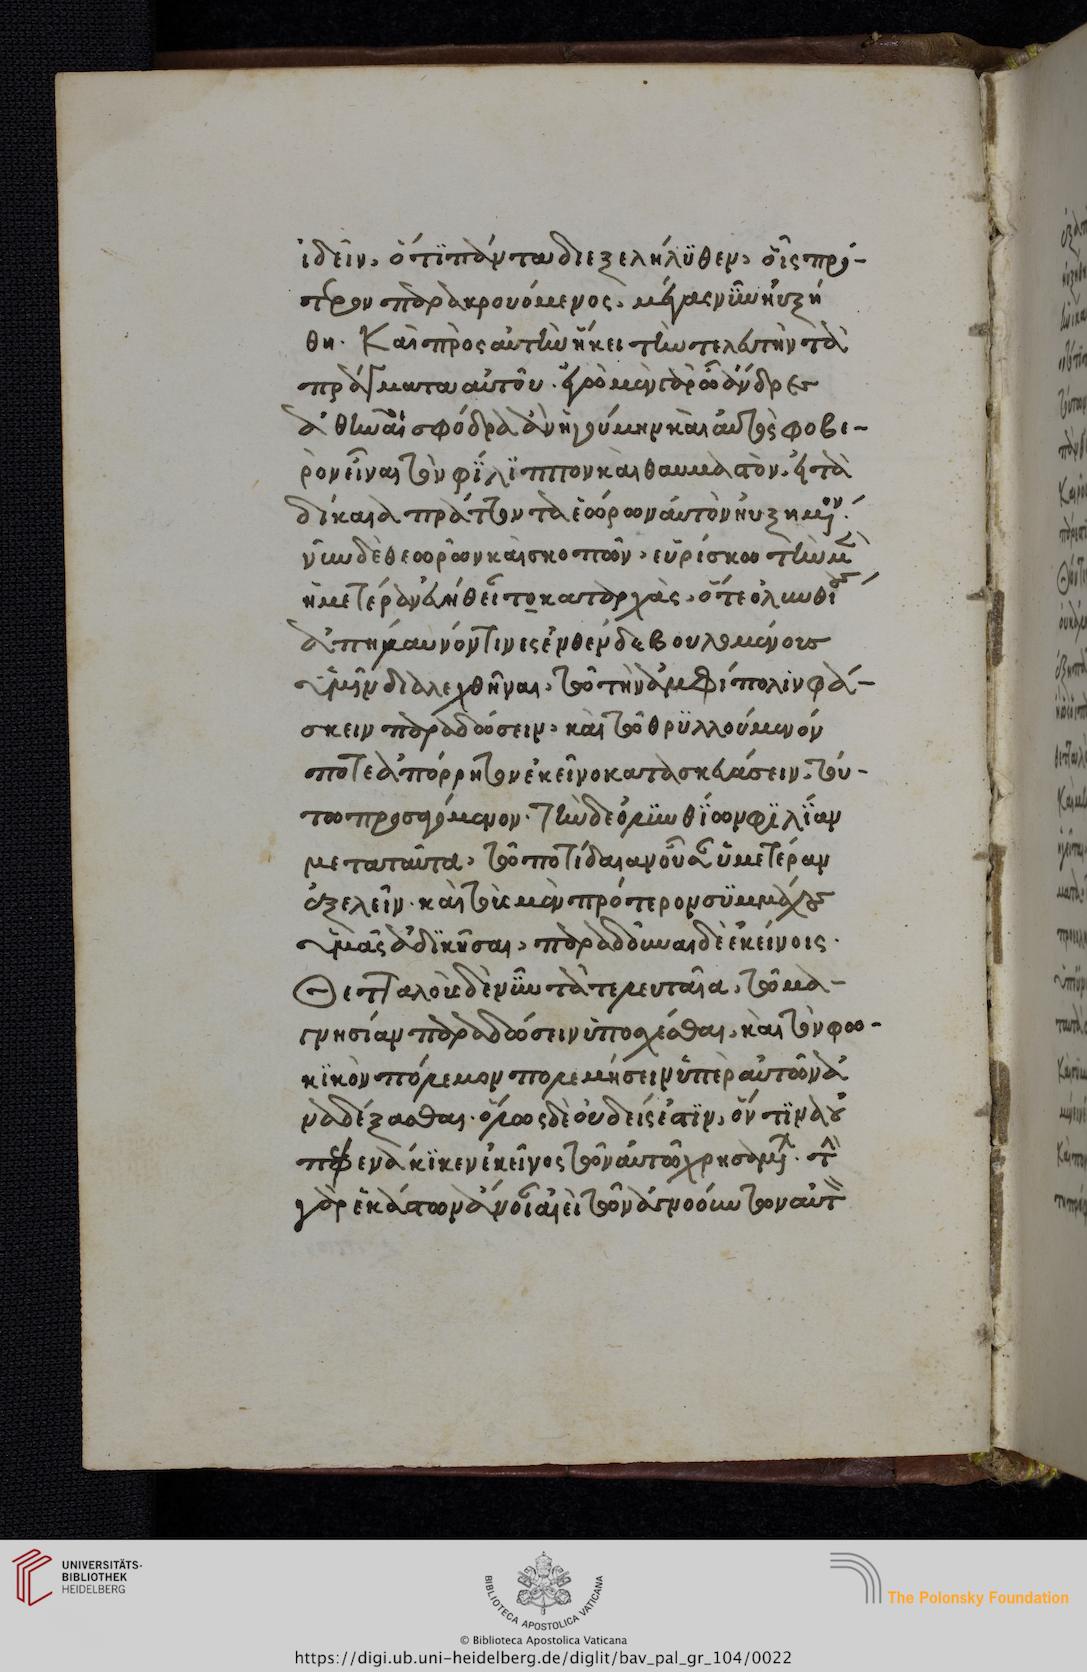 ἰδεῖν, ὅτι πάντα διεξελήλυθεν, οἷς πρό-
τερον παρακρουόμενος, μέγας νῦν ηὐξή
θη. Καὶ πρὸς αὐτὴν ἥκει τὴν τελευτὴν τὰ
πράγματα αὐτοῦ. ἐγὼ μὲν γὰρ ὦ ἄνδρες
ἀθηναῖοι σφόδρα ἂν ἡγούμην καὶ αὐτὸς φοβε-
ρὸν εἶναι τὸν φίλιππον καὶ θαυμαστὸν, εἰ τὰ
δίκαια πράττοντα ἑώρων αὐτὸν ηὐξημένον.
νῦν δὲ θεωρῶν καὶ σκοπῶν, εὑρίσκω τὴν μὲν
ἡμετέραν εὐήθειαν τὸ κατ' ἀρχὰς, ὅτε ὀλυνθίους
ἀπήλαυνόν τινες ἐνθένδε βουλομένους
ὑμῖν διαλεχθῆναι, τῷ τὴν ἀμφίπολιν φά-
σκειν παραδώσειν, καὶ τὸ θρυλλούμενόν
ποτε ἀπόρρητον ἐκεῖνο κατασκευάσειν, τού-
τῳ προσαγόμενον. τὴν δὲ ὀλυνθίων φιλίαν
μετὰ ταῦτα, τῷ ποτίδαιαν οὖσαν ὑμετέραν
ἐξελεῖν. καὶ τοὺς μὲν πρότερον συμμάχους
ὑμᾶς ἀδικῆσαι, παραδοῦναι δὲ ἐκείνοις.
Θετταλοὺς δὲ νῦν τὰ τελευταῖα, τῷ μα-
γνησίαν παραδώσειν ὑποσχέσθαι, καὶ τὸν φω-
κικὸν πόλεμον πολεμήσειν ὑπὲρ αὐτῶν ἀ
ναδέξασθαι. ὅλως δὲ οὐδείς ἐστιν, ὅν τινα οὐ
πεφενάκικεν ἐκεῖνος τῶν αὐτῷ χρησαμένων. τὴν
γὰρ ἑκάστων ἄνοιαν ἀεὶ τῶν ἀγνοούντων αὐτὸν
UNIVERSITÄTS-
BIBLIOTHEK
HEIDELBERG
BIBLIOTECA APOSTOLICA VATICANA
The Polonsky Foundation
© Biblioteca Apostolica Vaticana
https://digi.ub.uni-heidelberg.de/diglit/bav_pal_gr_104/0022